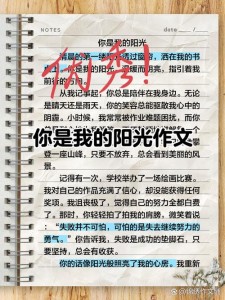 NOTES
date
你是我的阳光
清晨的第一缕
透过窗帘，洒在我的书
是我的阳光
暖而明亮，指引着我
前行的方向。
从我记事起，你总是陪伴在我身边。无论
是晴天还是雨天，你的笑容总能驱散我心中的
阴霾。小时候，我常常被作业难题困扰，而你
你是我的阳光作文
登一座山峰，只要不放弃，总会看到美丽的风
景。
记得有一次，学校举办了一场绘画比赛。
我对自己的作品充满了信心，却没能获得任何
奖项。我沮丧极了，觉得自己的努力全都白费
了。那时，你轻轻拍了拍我的肩膀，微笑着说
：“失败并不可怕，可怕的是失去继续努力的
勇气。”你告诉我，失败是成功的垫脚石，只
要坚持，总会有收获。
你的话像阳光般照亮了我的心房。我重新